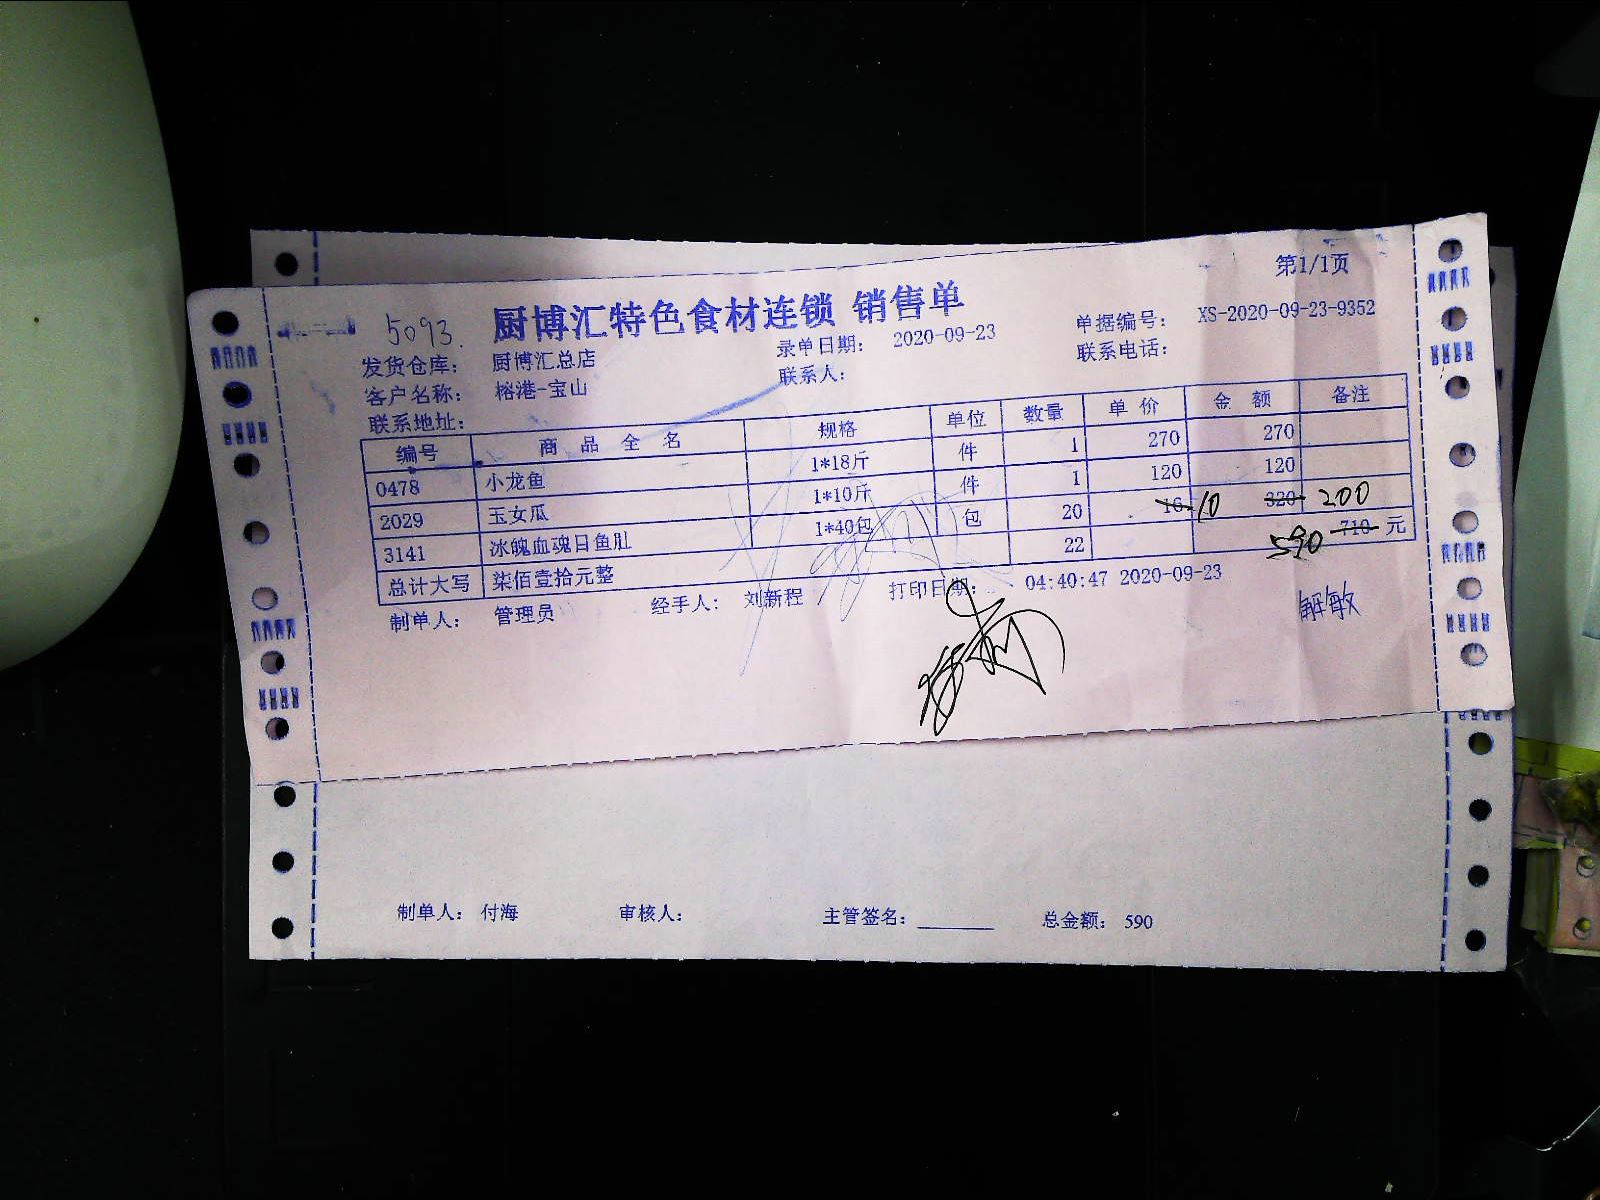 第1/1页
5093.
厨博汇特色食材连锁 销售单
发货仓库: 厨博汇总店 录单日期: 2020-09-23 单据编号: XS-2020-09-23-9352
客户名称: 榕港-宝山 联系人: 联系电话:
联系地址:
编号 商品全名 规格 单位 数量 单价 金额 备注
0478 小龙鱼 1*18斤 件 1 270 270
2029 玉女瓜 1*10斤 件 1 120 120
3141 冰魄血魂目鱼肚 1*40包 包 20 16 10 320 200
总计大写 柒佰壹拾元整 22 590 710 元
制单人: 管理员 经手人: 刘新程 打印日期: 04:40:47 2020-09-23
解敏
制单人: 付海 审核人: 主管签名: 总金额: 590